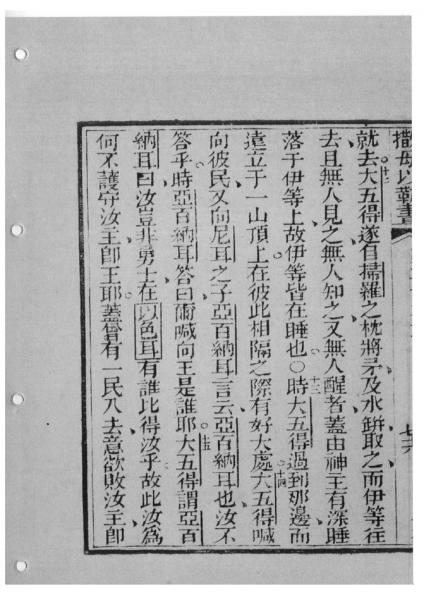 撒母以勒書
就去十二大五得遂自掃羅之枕將矛及水缾取之而伊等往
去且無人見之無人知之又無人醒者蓋由神王有深睡
落于伊等上故伊等皆在睡也○十三時大五得過到那邊而
遠立于一山頂上在彼此相隔之際有好大處十四大五得喊
向彼民又向尼耳之子亞百納耳言云亞百納耳也汝不
答乎時亞百納耳答曰爾喊向王是誰耶十五大五得謂亞百
納耳曰汝豈非勇士在以色耳有誰比得汝乎故此汝為
何不護守汝主即王耶蓋曾有一民入去意欲敗汝主即